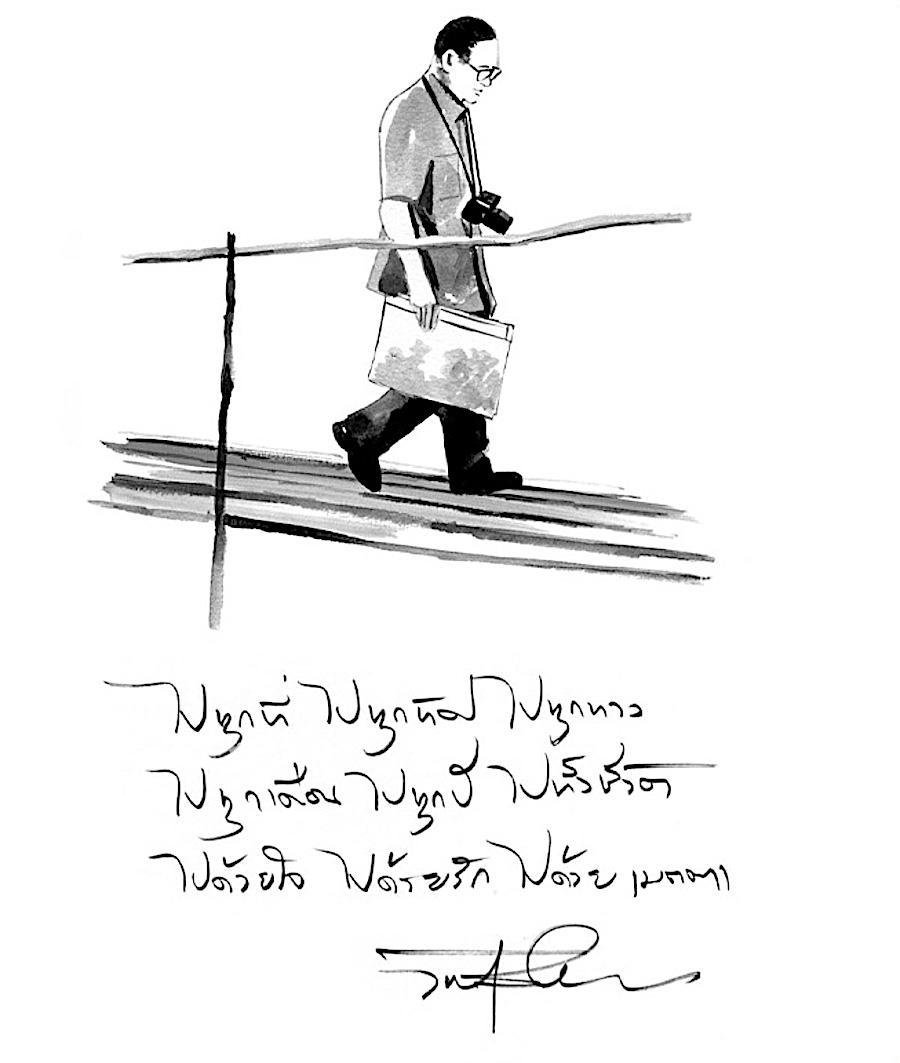 ไปทุกที่ ไปทุกทิศ ไปทุกทาง
ไปทุกเดือน ไปทุกปี ไปทั้งชีวิต
ไปด้วยใจ ไปด้วยรัก ไปด้วย เมตตา